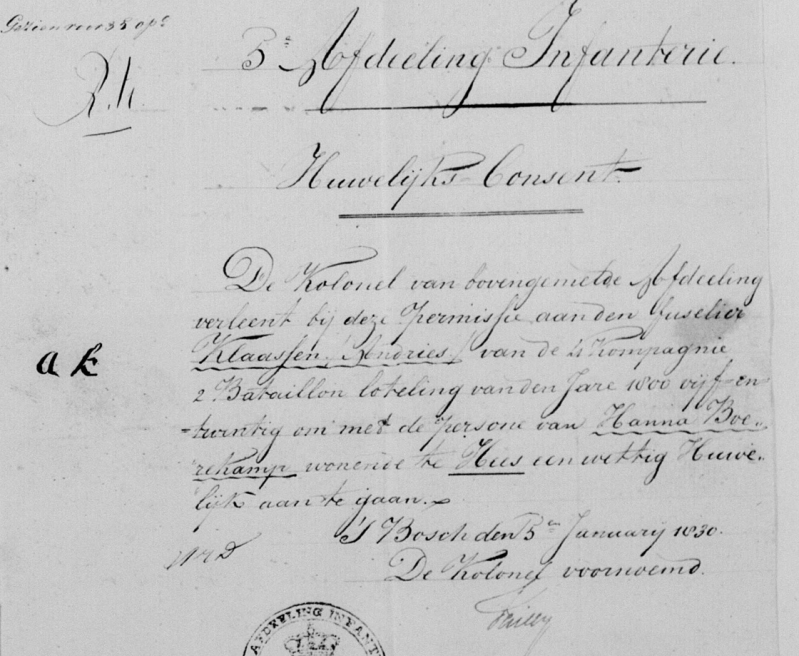 5e Afdeeling Infanterie.
R.h.
Huwelijks-Consent.
De Kolonel van bovengemelde Afdeeling
verleent bij deze permissie aan den fuselier
Klaassen (Andries) van de 4 Kompagnie
a k
2 Bataillon loteling van den Jare 1800 vijf en
=twintig om met de persone van Hanna Boe„
rekamp wonende te Hees een wettig Huwe„
lijk aan te gaan.
'S Bosch den 5en January 1830.
De Kolonel voornoemd.
AFDEELING INFANT